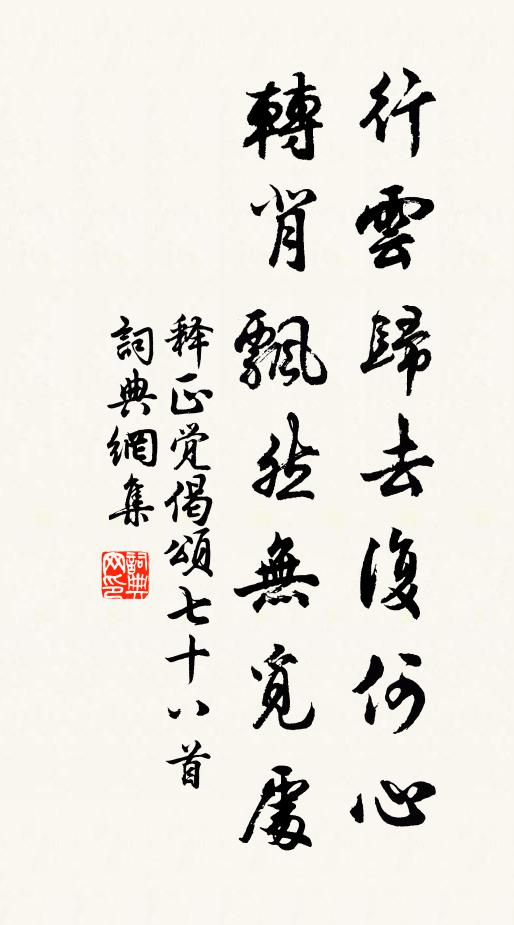 行雲歸去復何心
轉背飄然無覓處
释正觉偈頌七十八首
詞典網集
詞典
网印